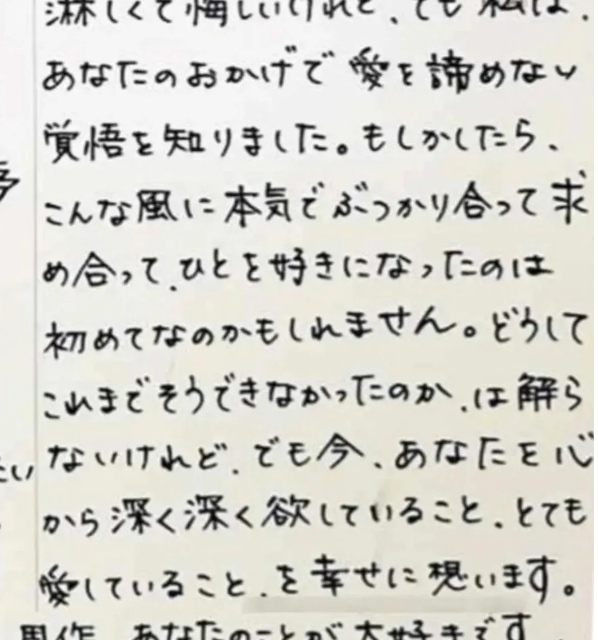 淋しくて悔しいけれど、でも私は、
あなたのおかげで愛を諦めない
覚悟を知りました。もしかしたら、
こんな風に本気でぶつかり合って求
め合って、ひとを好きになったのは
初めてなのかもしれません。どうして
これまでそうできなかったのか、は解ら
ないけれど、でも今、あなたを心
から深く深く欲していること、とても
愛していること、を幸せに想います。
あなたのことが大好きです